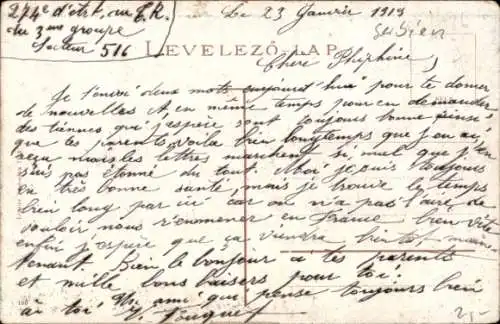 274e d'Art. au T.R.
du 3ème groupe
Secteur 516
Le 23 Janvier 1919
Serbien
LEVELEZŐ-LAP
Chère Phiphine,
Je t'envoi deux mots aujourd'hui pour te donner
de nouvelles et en même temps pour en demander
des tiennes qui j'espère sont toujours bonne ainsi
que tes parents, voila bien longtemps que j'en ai
reçu mais les lettres marchent si mal que j'en
suis pas étonné du tout. Moi je suis toujours
en très bonne santé, mais je trouve le temps
bien long par ici car on n'a pas l'aire de
vouloir nous r'emmener en France bien vite
enfin j'espère que ça viendra bientôt main-
tenant. Bien le bonjour a tes parents
et mille bons baisers pour toi.
Un ami qui pense toujours bien
a toi. V. Touquet
2,-